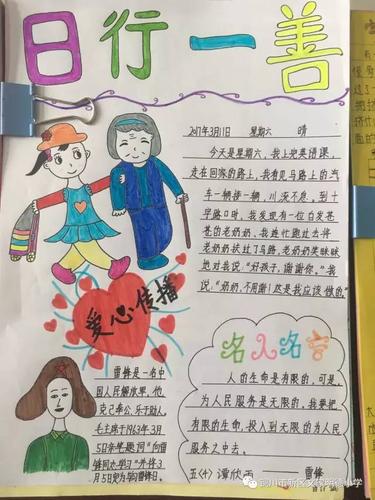 日行一善
2017年3月1日 星期六 晴
今天是星期六，我上完英语课，
走在回家的路上，我看见马路上的汽
车一辆接一辆，川流不息，到十
字路口时，我发现有一位白发苍
苍的老奶奶，我连忙跑过去将
老奶奶扶过了马路，老奶奶笑眯眯
地对我说："好孩子，谢谢你。"我
说："奶奶，不用谢！这是我应该做的"
爱心传播
雷锋是一名中
国人民解放军，他
克己奉公，乐于助人。
毛主席于1963年3月
5日亲笔题词"向雷
锋同志学习"并将3
月5日定为学雷锋日。
名人名言
人的生命是有限的，可是，
为人民服务是无限的，我要把
有限的生命，投入到无限的为人民
服务之中去。
——雷锋
五<十> 谭欣雨